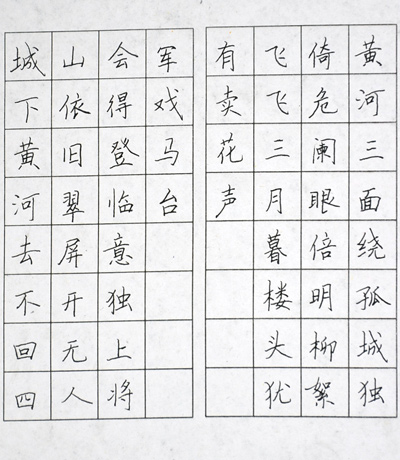 城下黄河去不回四
山依旧翠屏开无人
会得登临意独上将
军戏马台
黄河三面绕孤城独
倚危阑眼倍明柳絮
飞飞三月暮楼头犹
有卖花声